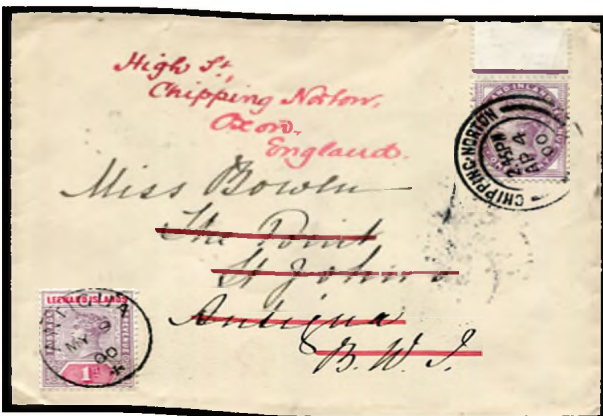 High St,
Chipping Norton,
Oxon,
England.
Miss Bowen
The Point
St John's
Antigua
B. W. I.
CHIPPING-NORTON
AP 4
00
LEEWARD ISLANDS
ANTIGUA
MY 9
00
1D